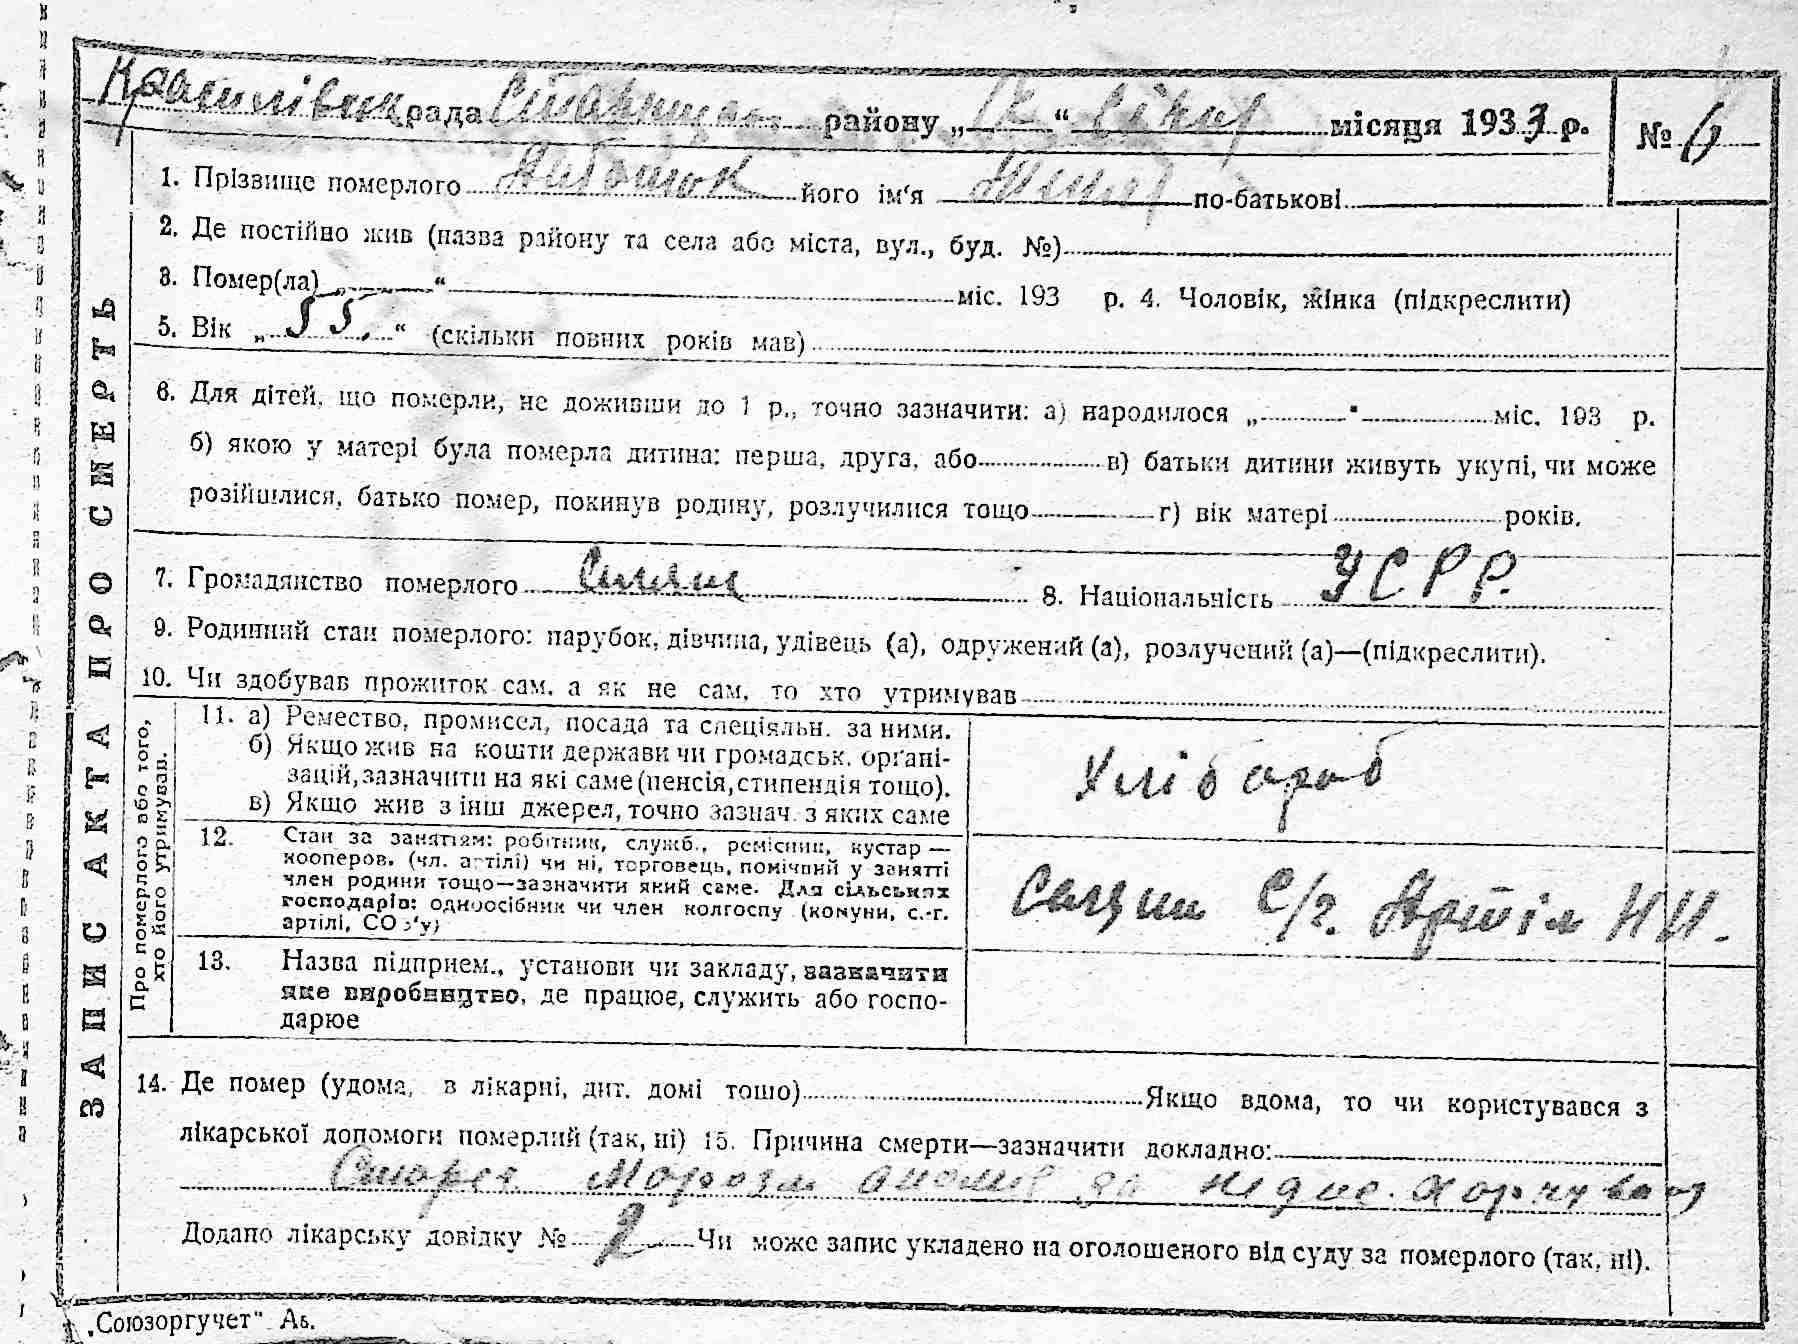 рада району „ “ місяця 1933 р. № 6
1. Прізвище померлого його ім‘я по-батькові
2. Де постійно жив (назва району та села або міста, вул., буд. №)
3. Помер(ла) „ “ міс. 193 р. 4. Чоловік, жінка (підкреслити)
5. Вік „ 55. “ (скільки повних років мав)
6. Для дітей, що померли, не доживши до 1 р., точно зазначити: а) народилося „ " міс. 193 р.
б) якою у матері була померла дитина: перша, друга, або в) батьки дитини живуть укупі, чи може
розійшлися, батько помер, покинув родину, розлучилися тощо г) вік матері років.
7. Громадянство померлого 8. Національність УСРР.
9. Родинний стан померлого: парубок, дівчина, удівець (а), одружений (а), розлучений (а)—(підкреслити).
10. Чи здобував прожиток сам, а як не сам, то хто утримував
ЗАПИС АКТА ПРО СМЕРТЬ
Про померлого або того,
хто його утримував.
11. а) Ремество, промисел, посада та спеціяльн. за ними.
б) Якщо жив на кошти держави чи громадськ. орґані-
зацій, зазначити на які саме (пенсія, стипендія тощо).
в) Якщо жив з інш джерел, точно зазнач. з яких саме
Хлібороб
12. Стан за заняттям: робітник, служб., ремісник, кустар —
кооперов. (чл. артілі) чи ні, торговець, помічний у занятті
член родини тощо—зазначити який саме. Для сільських
господарів: одноосібник чи член колгоспу (комуни, с.-г.
артілі, СОЗ'у)
С/г.
13. Назва підприєм., установи чи закладу, зазначити
яке виробництво, де працює, служить або госпо-
дарює
14. Де помер (удома, в лікарні, дит. домі тощо) Якщо вдома, то чи користувався з
лікарської допомоги померлий (так, ні) 15. Причина смерти—зазначити докладно:
Додано лікарську довідку № 2 Чи може запис укладено на оголошеного від суду за померлого (так, ні).
„Союзоргучет" Аь.